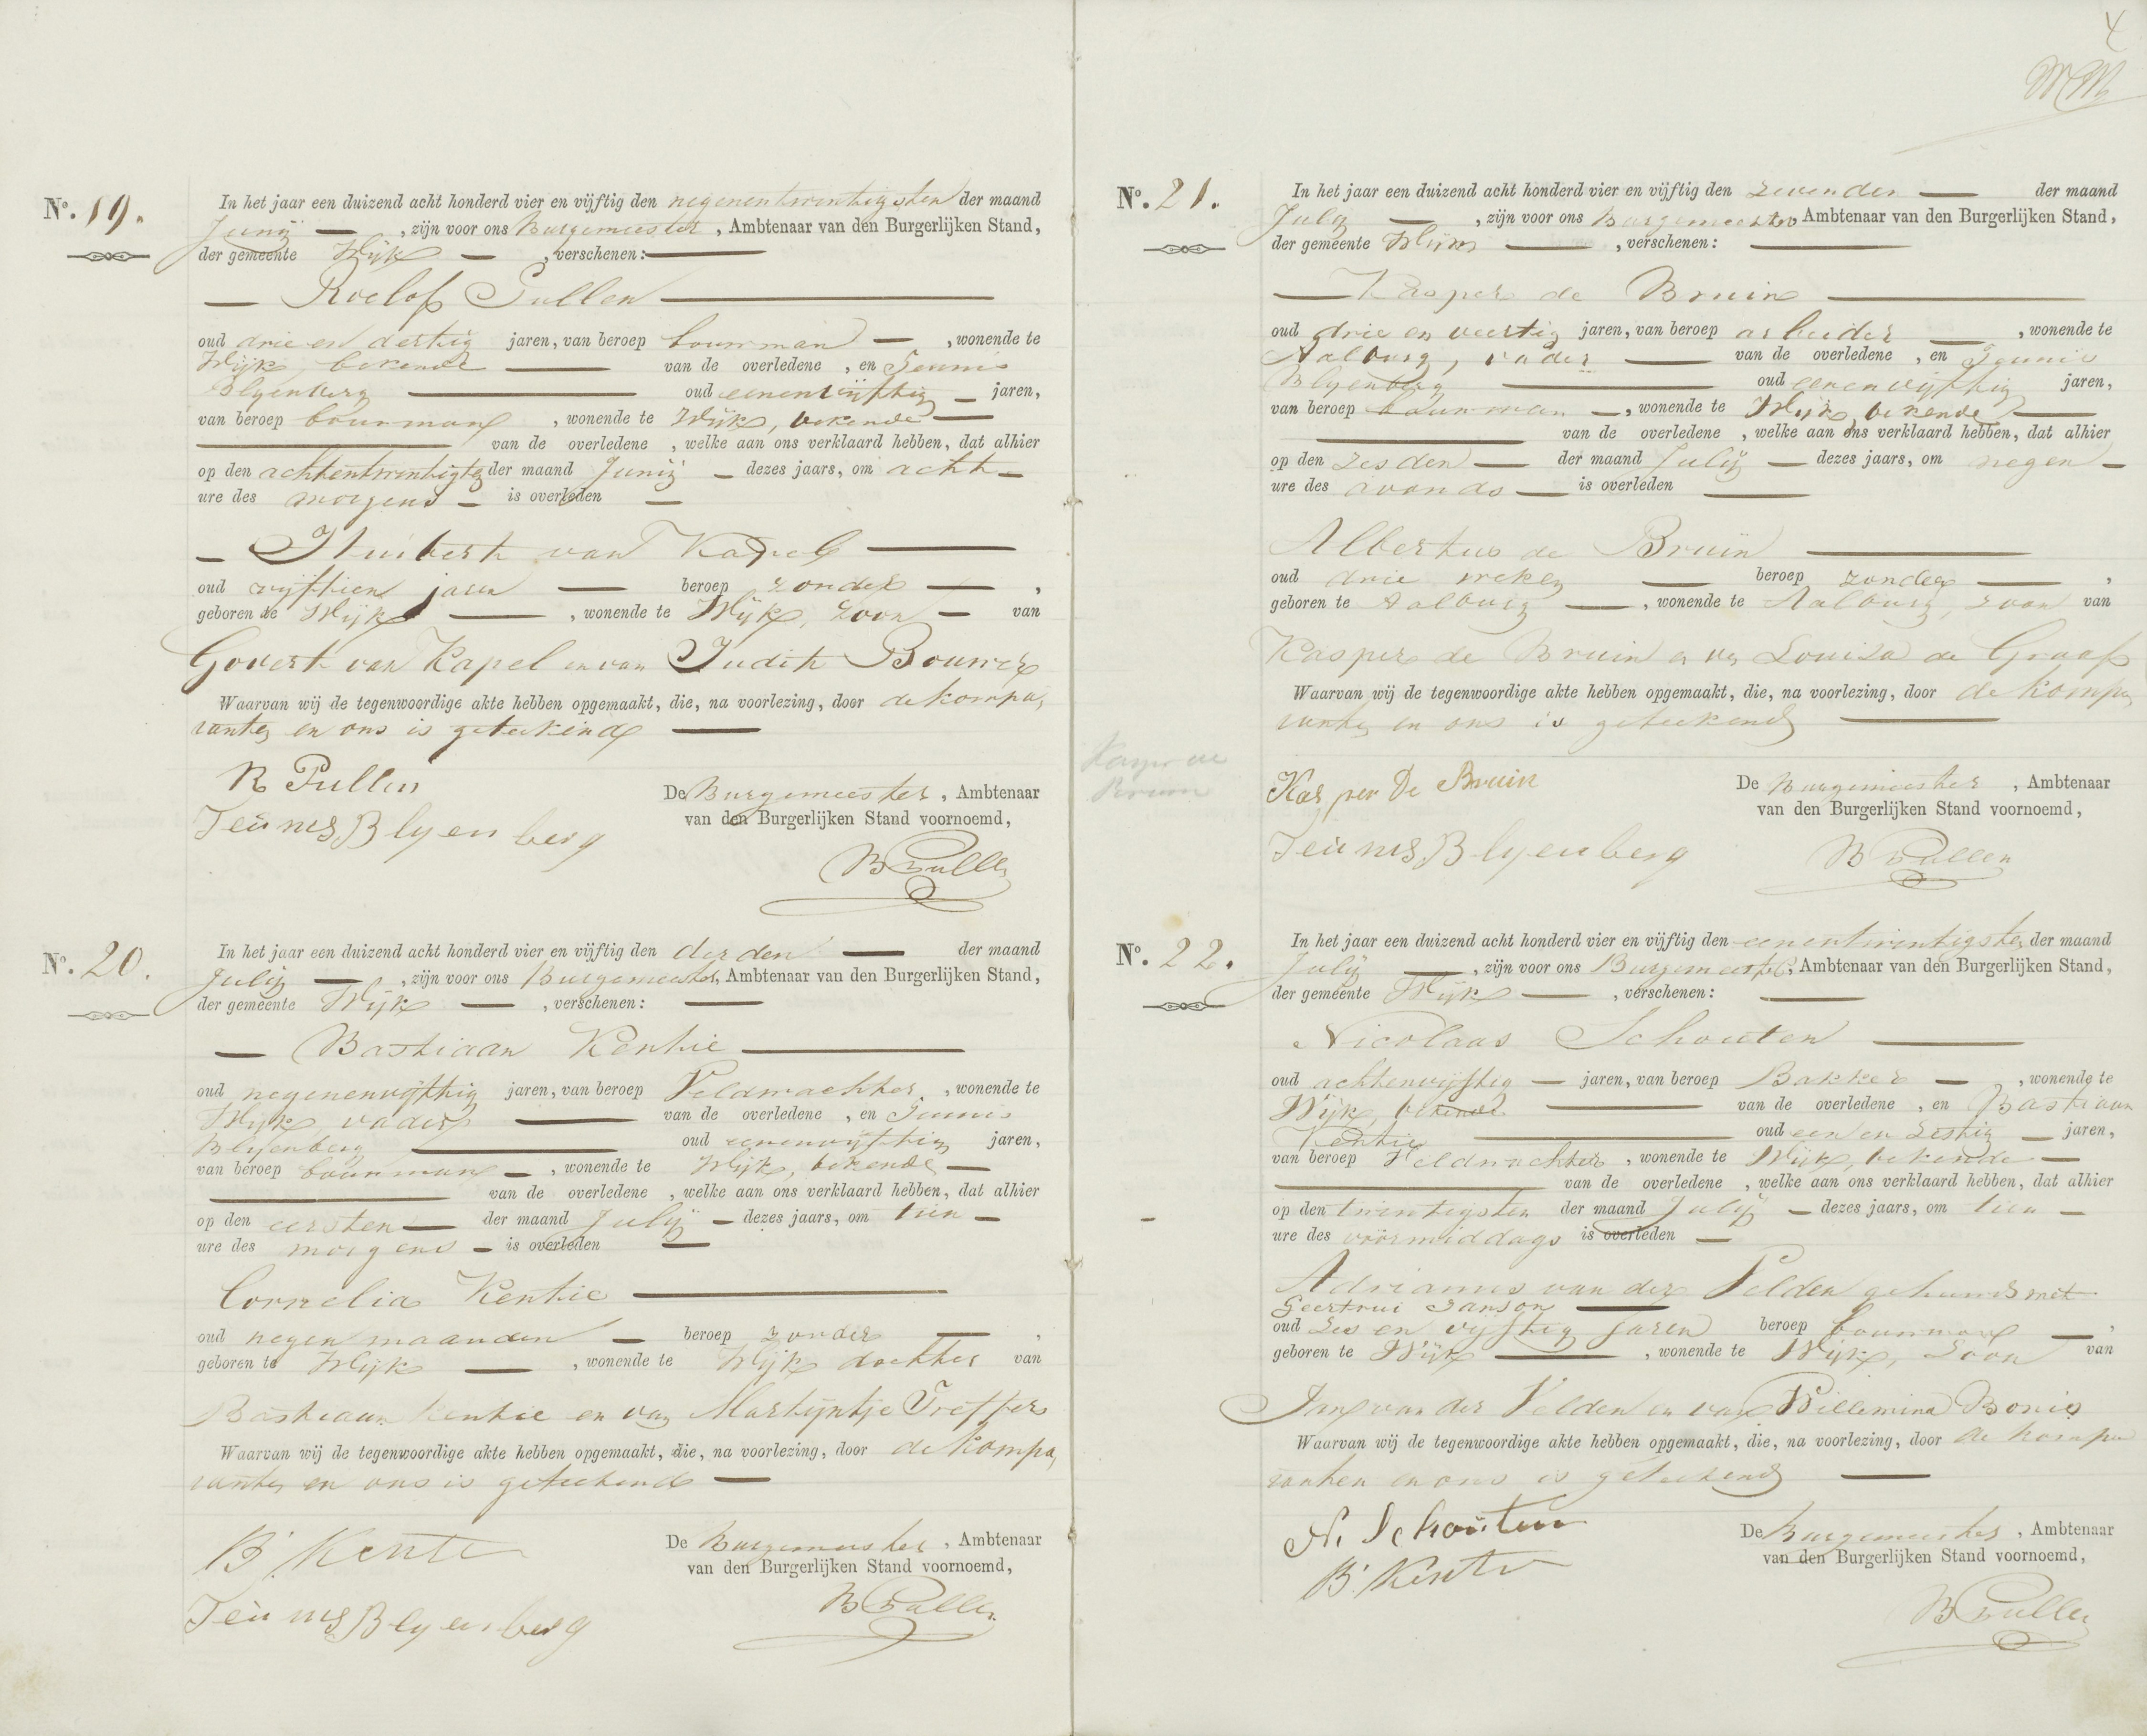 4
N°. 19.
In het jaar een duizend acht honderd vier en vijftig den negenentwintigsten der maand
Junij — , zijn voor ons Burgemeester , Ambtenaar van den Burgerlijken Stand,
der gemeente Wijk — , verschenen: —
— Roelof Pullen —
oud drie en dertig jaren, van beroep bouwman — , wonende te
Wijk, bekende — van de overledene , en Teunis
Blyenberg — oud eenenvijftig — jaren,
van beroep bouwman , wonende te Wijk, bekende —
— van de overledene , welke aan ons verklaard hebben, dat alhier
op den achtentwintigsten der maand Junij — dezes jaars, om acht —
ure des morgens — is overleden —
— Huibert van Kapel —
oud vijftien jaren — beroep zonder — ,
geboren te Wijk — , wonende te Wijk, zoon — van
Govert van Kapel en van Judith Bouwer
Waarvan wij de tegenwoordige akte hebben opgemaakt, die, na voorlezing, door de kompa,
ranten en ons is geteekend —
R Pullen
Teunis Blyenberg
De Burgemeester , Ambtenaar
van den Burgerlijken Stand voornoemd,
B Pullen
N°. 20.
In het jaar een duizend acht honderd vier en vijftig den derden — der maand
Julij — , zijn voor ons Burgemeester, Ambtenaar van den Burgerlijken Stand,
der gemeente Wijk — , verschenen: —
— Bastiaan Kentie —
oud negenenvijftig jaren, van beroep Veldwachter , wonende te
Wijk, vader — van de overledene , en Teunis
Blyenberg — oud eenenvijftig jaren,
van beroep bouwman — , wonende te Wijk, bekende —
— van de overledene , welke aan ons verklaard hebben, dat alhier
op den eersten — der maand Julij — dezes jaars, om tien —
ure des morgens — is overleden —
Cornelia Kentie —
oud negen maanden — beroep zonder — ,
geboren te Wijk — , wonende te Wijk dochter van
Bastiaan Kentie en van Martijntje Treffers
Waarvan wij de tegenwoordige akte hebben opgemaakt, die, na voorlezing, door de kompa,
ranten en ons is geteekend —
B Kentie
Teunis Blyenberg
De Burgemeester , Ambtenaar
van den Burgerlijken Stand voornoemd,
B Pullen
N°. 21.
In het jaar een duizend acht honderd vier en vijftig den zevenden — der maand
Julij — , zijn voor ons Burgemeester Ambtenaar van den Burgerlijken Stand,
der gemeente Wijk — , verschenen: —
— Kasper de Bruin —
oud drie en veertig jaren, van beroep arbeider — , wonende te
Aalburg, vader — van de overledene , en Teunis
Blyenberg — oud eenenvijftig jaren,
van beroep bouwman — , wonende te Wijk, bekende —
— van de overledene , welke aan ons verklaard hebben, dat alhier
op den zesden — der maand Julij — dezes jaars, om negen —
ure des avonds — is overleden —
Albertus de Bruin —
oud drie weken — beroep zonder — ,
geboren te Aalburg — , wonende te Aalburg, zoon van
Kasper de Bruin en van Louisa de Graaf
Waarvan wij de tegenwoordige akte hebben opgemaakt, die, na voorlezing, door de kompa,
ranten en ons is geteekend —
Kasper de
Bruin
Kasper De Bruin
Teunis Blyenberg
De Burgemeester , Ambtenaar
van den Burgerlijken Stand voornoemd,
B Pullen
N°. 22.
In het jaar een duizend acht honderd vier en vijftig den eenentwintigsten der maand
Julij — , zijn voor ons Burgemeester, Ambtenaar van den Burgerlijken Stand,
der gemeente Wijk — , verschenen: —
Nicolaas Schouten —
oud achtenvijftig — jaren, van beroep Bakker — , wonende te
Wijk, bekende — van de overledene , en Bastiaan
Kentie — oud een en zestig — jaren,
van beroep Veldwachter , wonende te Wijk, bekende —
— van de overledene , welke aan ons verklaard hebben, dat alhier
op den twintigsten der maand Julij — dezes jaars, om tien —
ure des voormiddags is overleden —
Adrianus van der Velden gehuwd met
Geertrui Janson —
oud zes en vijftig jaren beroep bouwman — ,
geboren te Wijk — , wonende te Wijk, zoon van
Jan van der Velden en van Willemina Bonis
Waarvan wij de tegenwoordige akte hebben opgemaakt, die, na voorlezing, door de kompa
ranten en ons is geteekend —
N. Schouten
B Kentie
De Burgemeester , Ambtenaar
van den Burgerlijken Stand voornoemd,
B Pullen